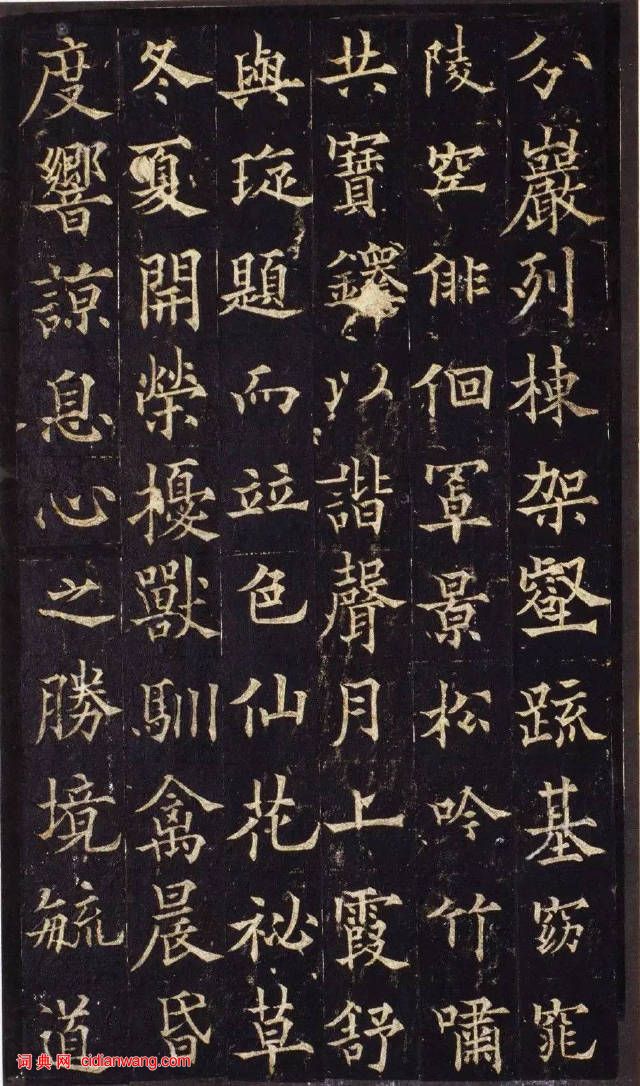 分巖列棟架壑疏基窈窕
陵空俳佪罩景松吟竹嘯
共寶鐸以諧聲月上霞舒
與琁題而竝色仙花祕草
冬夏開榮擾獸馴禽晨昏
度響諒息心之勝境毓道
词典网 cidianwang.com